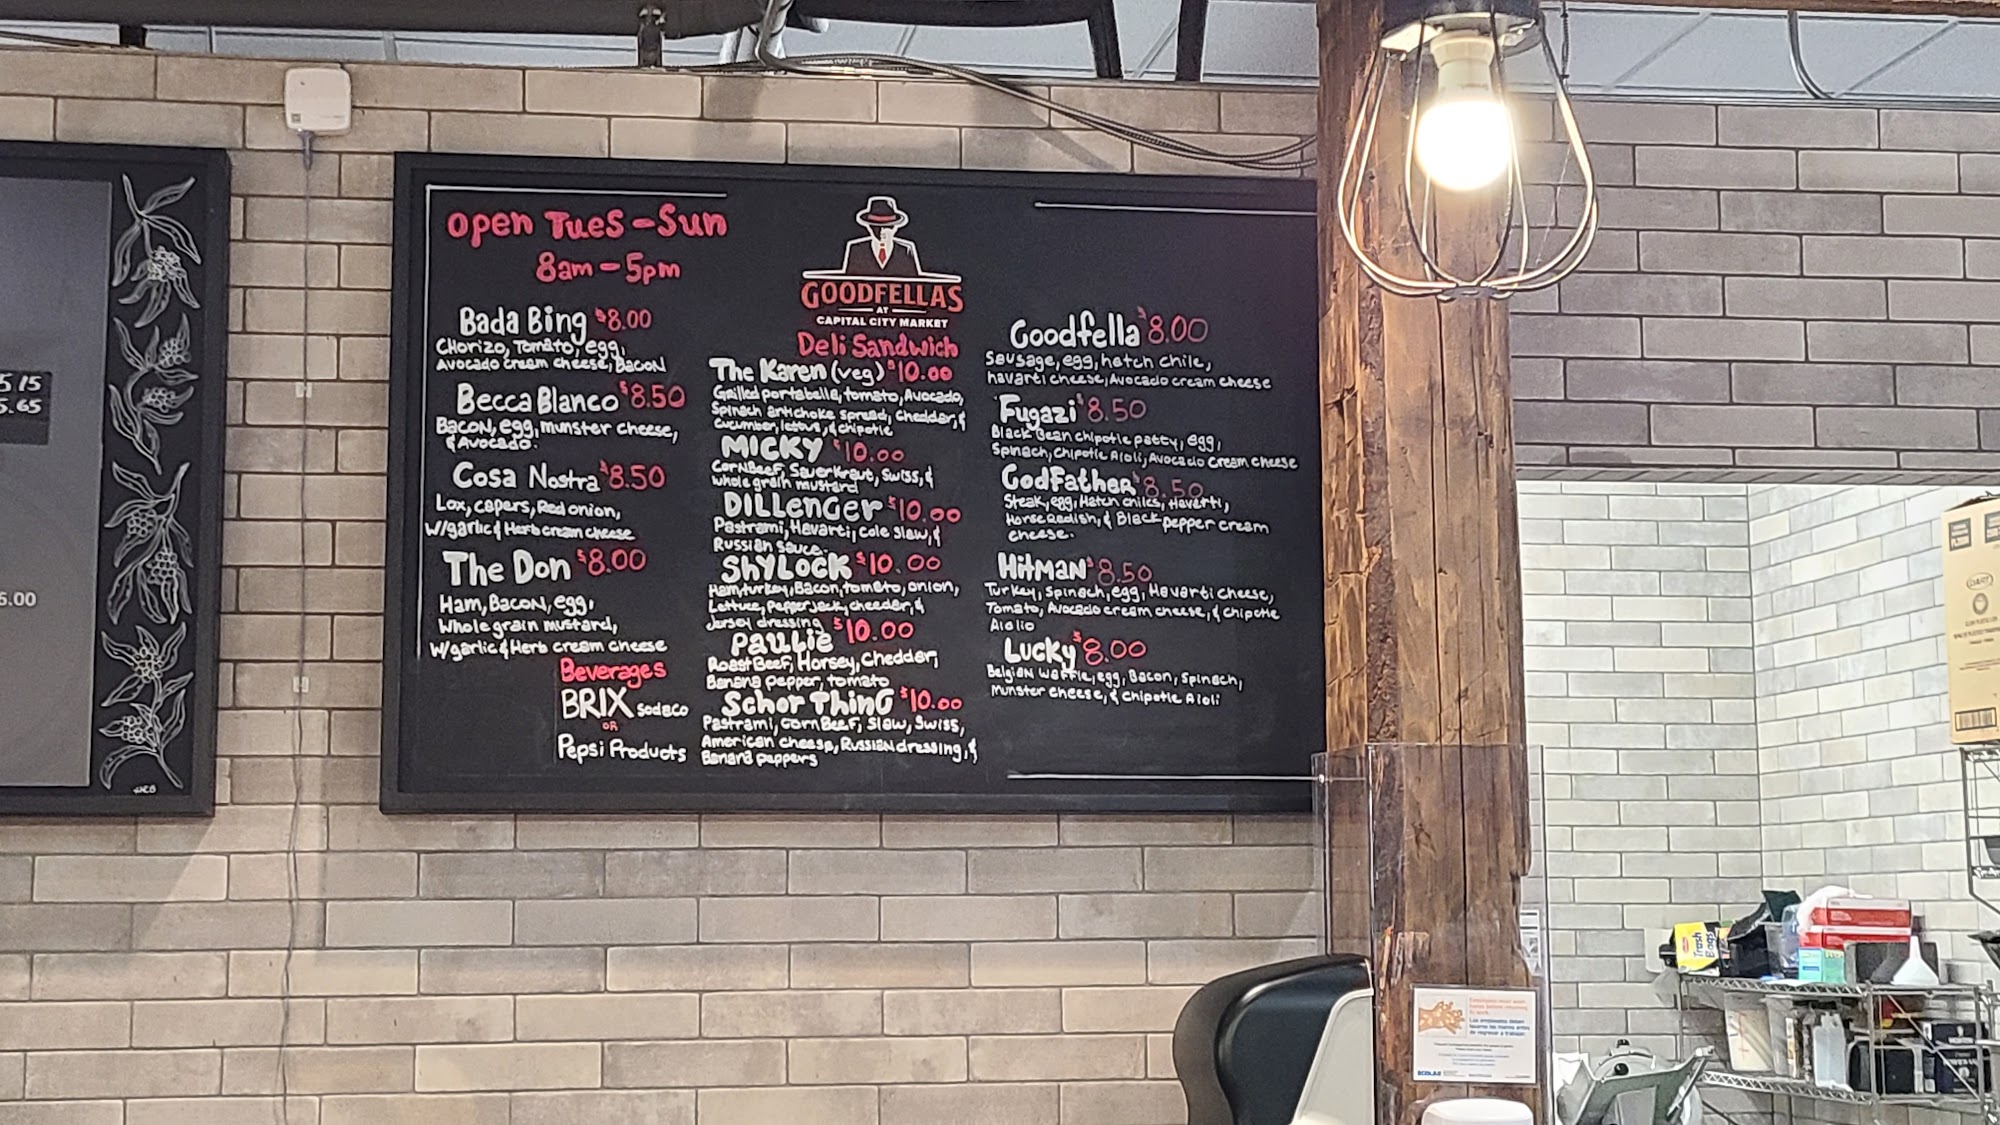 5 15
5.65
5.00
Open Tues - Sun
8am - 5pm
Bada Bing $8.00
Chorizo, Tomato, egg,
Avocado cream cheese, Bacon
Becca Blanco $8.50
Bacon, egg, munster cheese,
& Avocado.
Cosa Nostra $8.50
Lox, capers, Red onion,
w/garlic & Herb cream cheese
The Don $8.00
Ham, Bacon, egg,
Whole grain mustard,
w/garlic & Herb cream cheese
Beverages
BRIX Sodaco
OR
Pepsi Products
GOODFELLAS
AT
CAPITAL CITY MARKET
Deli Sandwich
The Karen (veg) $10.00
Grilled portabella, tomato, Avocado,
Spinach artichoke spread, cheddar, &
cucumber, lettus, & chipotle
Micky $10.00
Corn Beef, Sauerkraut, Swiss, &
whole grain mustard
Dillenger $10.00
Pastrami, Havarti, cole slaw, &
Russian sauce.
Shylock $10.00
Ham, turkey, Bacon, tomato, onion,
Lettuce, Pepper jack, cheeder, &
Jersey dressing
Paulie $10.00
Roast Beef, Horsey, Cheddar,
Banana pepper, tomato
Schor Thing $10.00
Pastrami, corn Beef, Slaw, Swiss,
American cheese, Russian dressing, &
Banana peppers
Goodfella $8.00
Sausage, egg, hatch chile,
havarti cheese, Avocado cream cheese
Fugazi $8.50
Black Bean chipotle patty, egg,
Spinach, Chipotle Aioli, Avocado cream cheese
Godfather $8.50
Steak, egg, Hatch chiles, Havarti,
Horse Redish, & Black pepper cream
cheese.
Hitman $8.50
Turkey, Spinach, egg, Havarti cheese,
Tomato, Avocado cream cheese, & chipotle
Aiolio
Lucky $8.00
Belgian waffle, egg, Bacon, Spinach,
Munster cheese, & chipotle Aioli
DART
Trash
Bags
ECOLAB